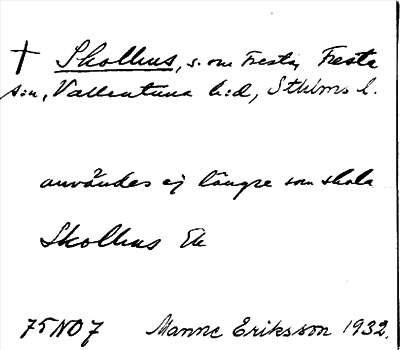 † Skolhus, s. om Fresta, Fresta
s:n, Vallentuna h:d, Sthlms l.
användes ej längre som skola
Skolhus Ek
75 NO 7 Manne Eriksson 1932.